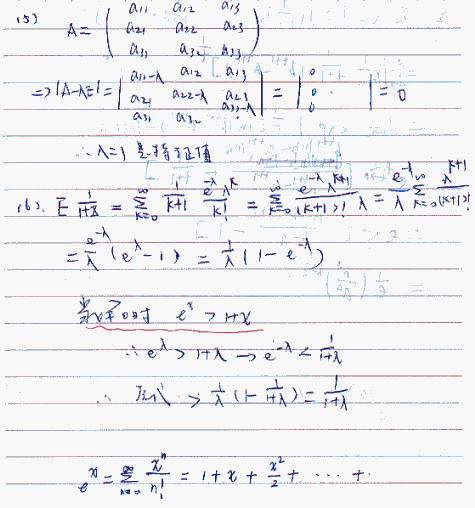 (5) A = ( a11 a12 a13
a21 a22 a23
a31 a32 a33 )
⇒ |A-λE| = | a11-λ a12 a13
a21 a22-λ a23
a31 a32 a33-λ | = | 0
0
0 | = 0
∴ λ=1 是特征值
(6). E 1/(1+X) = Σ_{k=0}^{∞} 1/(k+1) e^{-λ}λ^k/k! = Σ_{k=0}^{∞} e^{-λ}λ^{k+1}/((k+1)! λ) = e^{-λ}/λ Σ_{k=0}^{∞} λ^{k+1}/(k+1)!
= e^{-λ}/λ (e^λ - 1) = 1/λ (1 - e^{-λ})
当x≠0时 e^x > 1+x
∴ e^λ > 1+λ → e^{-λ} < 1/(1+λ)
∴ 原式 > 1/λ (1 - 1/(1+λ)) = 1/(1+λ)
e^x = Σ_{n=0}^{∞} x^n/n! = 1 + x + x²/2 + ··· +